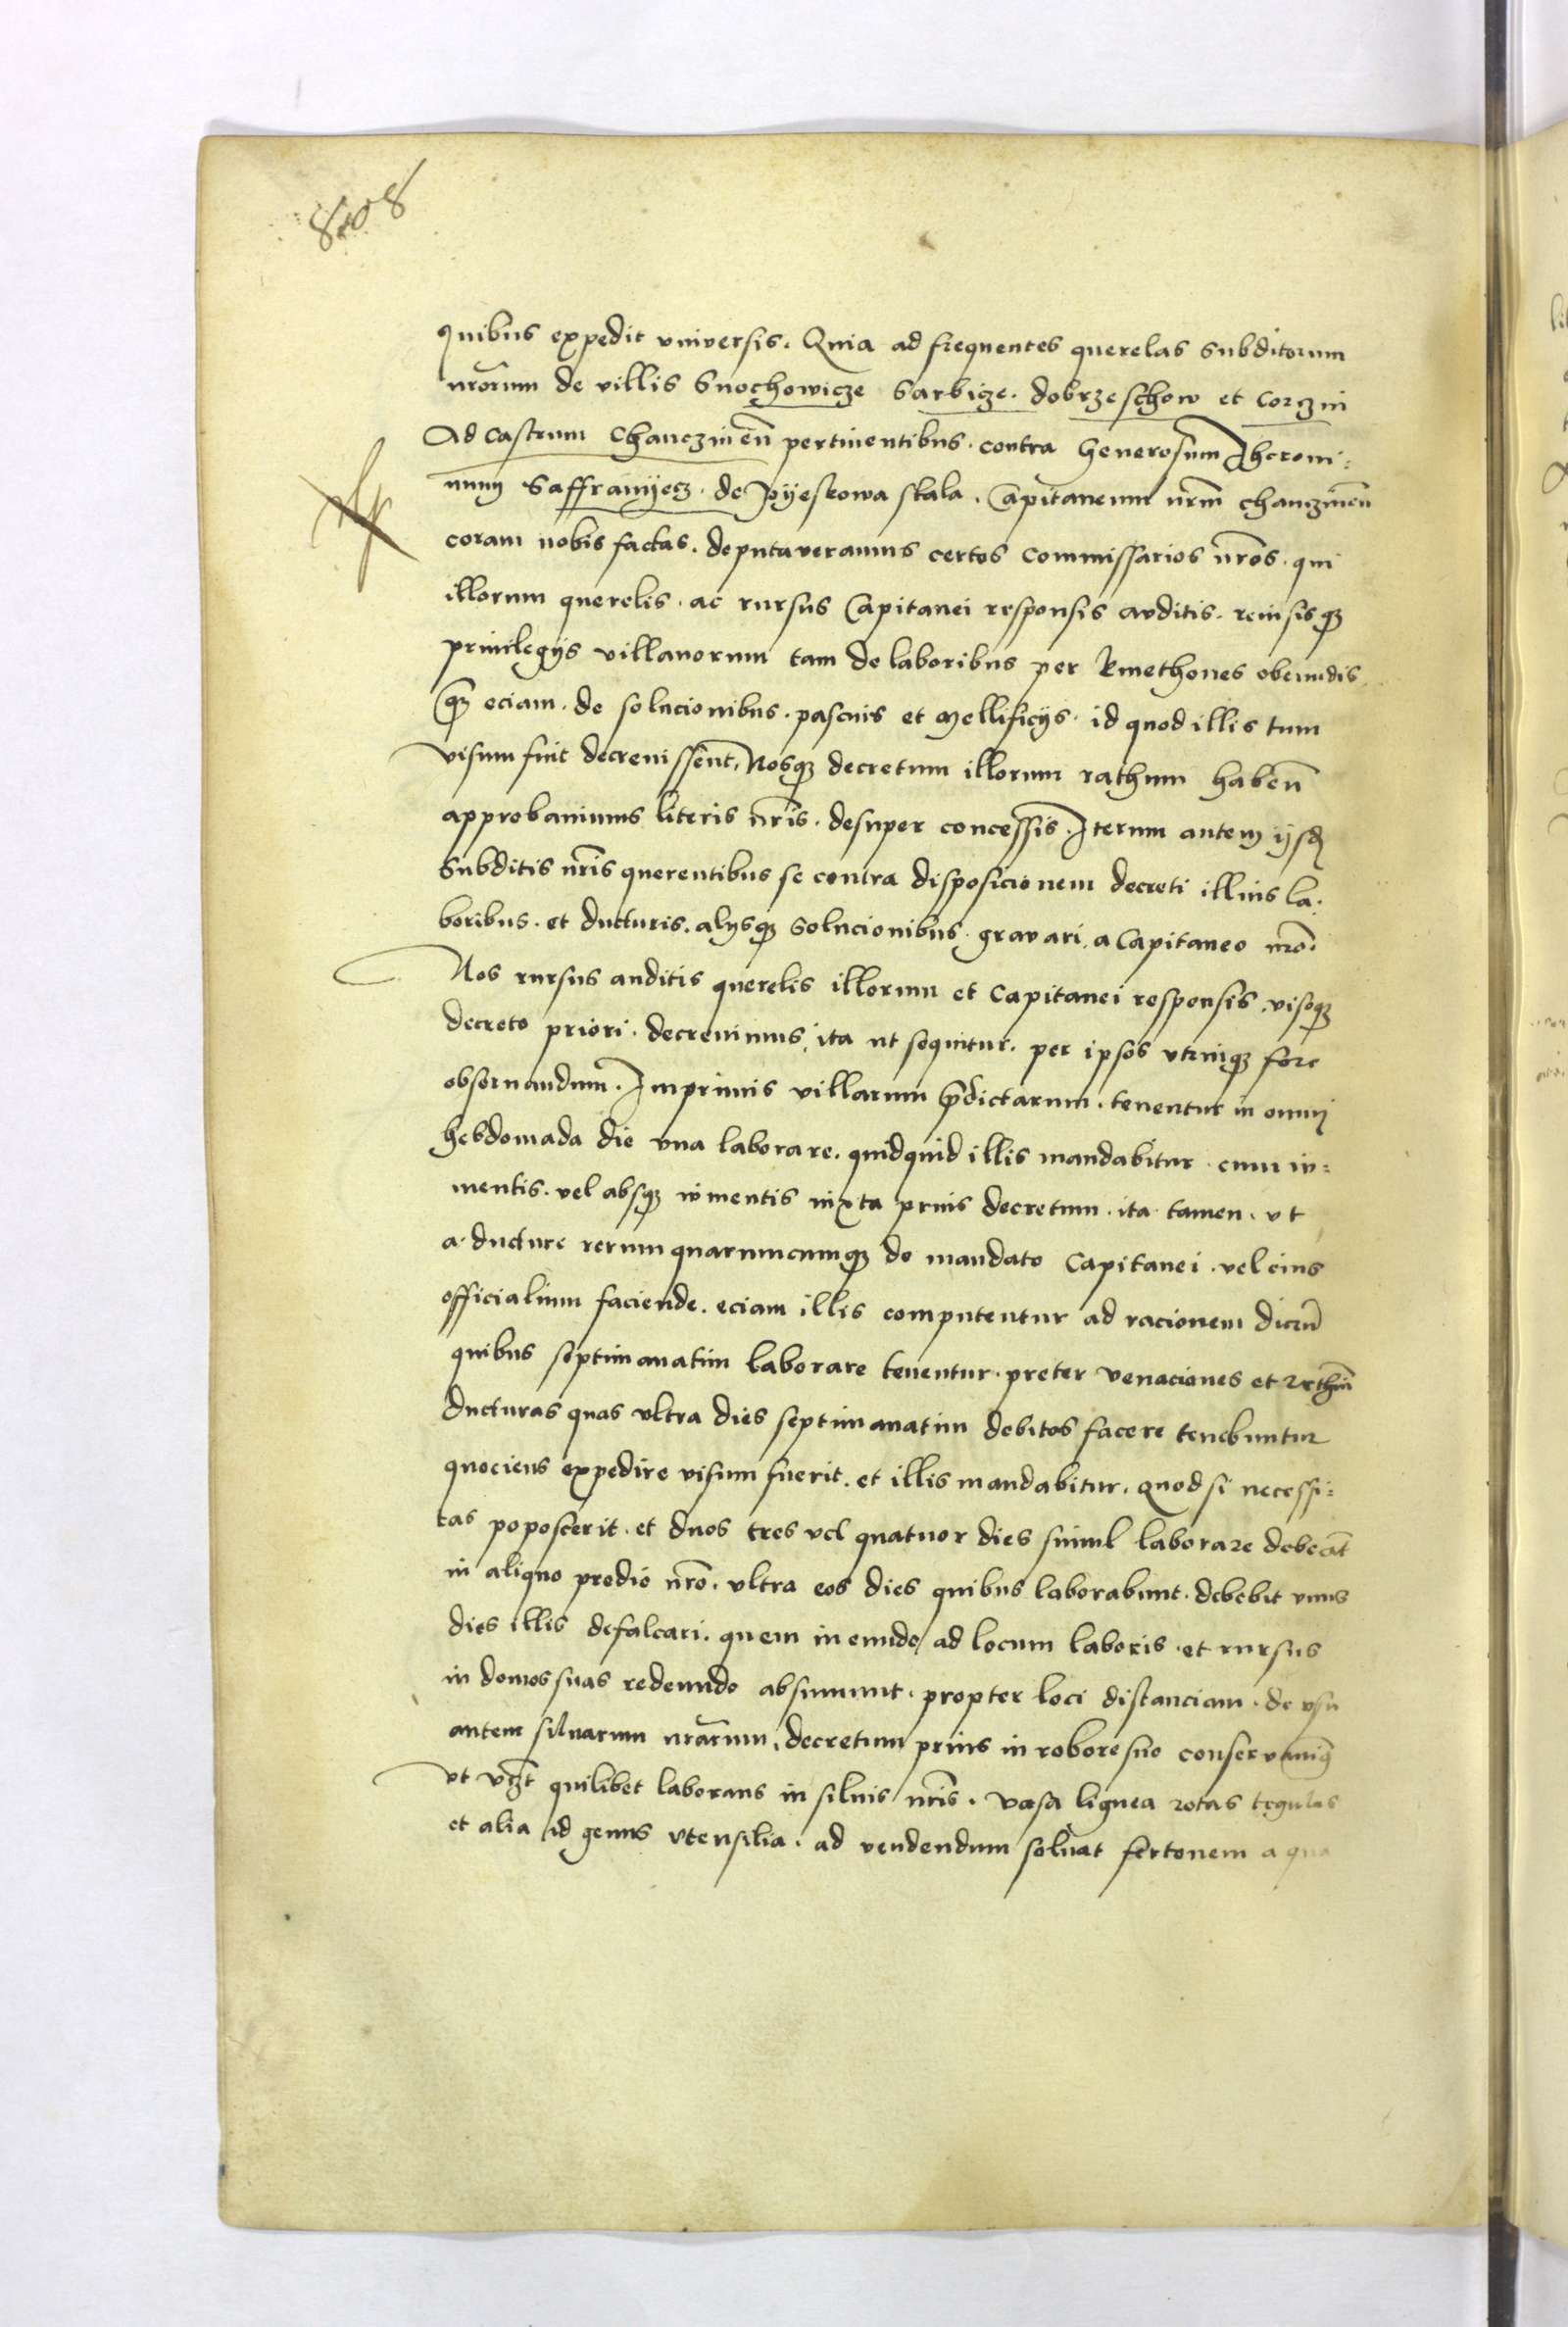 quibus expedit vniversis. Quia ad frequentes querelas subditorum
nrorum de villis Snochowicze Sarbicze. dobrzeschow et Corczin
Ad Castrum Chanczinen pertinentibus. contra Generosum Iheroni:
mum Saffranyecz. de Pyeskowa skala. Capitaneum nrm chanczinen
coram nobis factas. deputaveramus certos commissarios nros. qui
illorum querelis. ac rursus Capitanei responsis auditis. reuisisq3
priuilegijs villanorum tam de laboribus per kmethones obeundis
q3 eciam. de solucionibus. pascuis et mellificijs. id quod illis tum
visum fuit decreuissent, Nosq3 decretum illorum rathum haben
approbauimus literis nris. desuper concessis. Iterum autem ijsd
subditis nris querentibus se contra disposicionem decreti illius la:
boribus. et ducturis. alijsq3 solucionibus. gravari a Capitaneo nro.
Nos rursus auditis querelis illorum et Capitanei responsis, visoq3
decreto priori. decreuimus, ita ut sequitur. per ipsos vtrinq3 fore
obseruandum. Inprimis villarum pdictarum. tenentur in omni
hebdomada die vna laborare. quidquid illis mandabitur. cum iu:
mentis. vel absq3 iumentis iuxta prius decretum. ita tamen. vt
a. ducture rerum quarumcumq3 de mandato Capitanei. vel eius
officialium faciende. eciam illis computentur ad racionem dieru
quibus septimanatim laborare tenentur. preter venaciones et rethiu
ducturas quas vltra dies septimanatim debitos facere tenebuntur
quociens expedire visum fuerit. et illis mandabitur. quod si necessi:
tas poposcerit. et duos tres vel quatuor dies simul laborare debeat
in aliquo predio nro. vltra eos dies quibus laborabunt. debebit vnus
dies illis defalcari. quem in eundo ad locum laboris. et rursus
in domos suas redeundo absumunt. propter loci distanciam. de vsu
autem siluarum nrarum, decretum prius in robore suo conservamus
vt vz quilibet laborans in siluis nris. vasa lignea rotas tegulas
et alia id genus vtensilia. ad vendendum soluat fertonem a qua